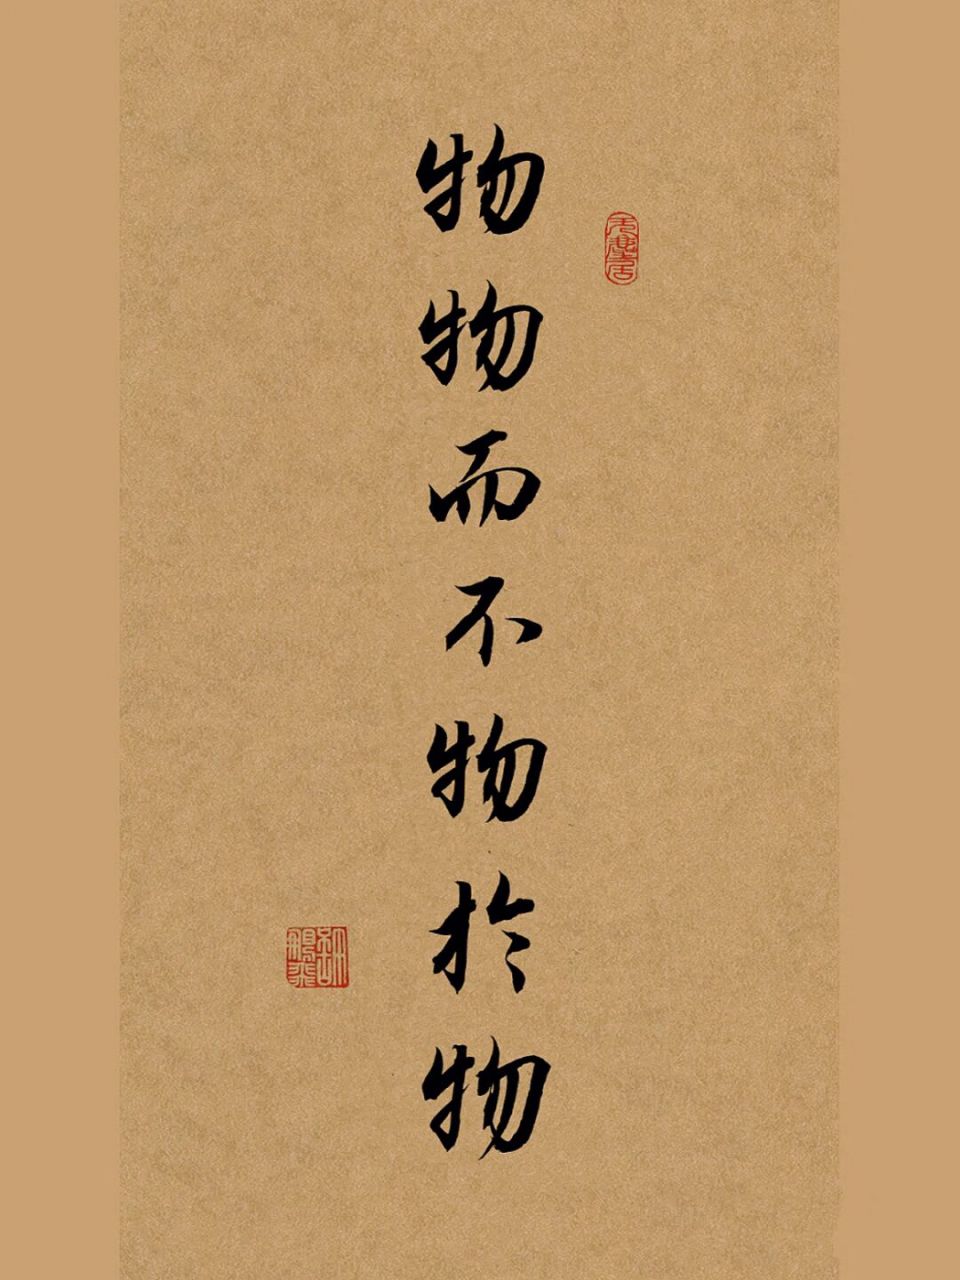 物物而不物於物